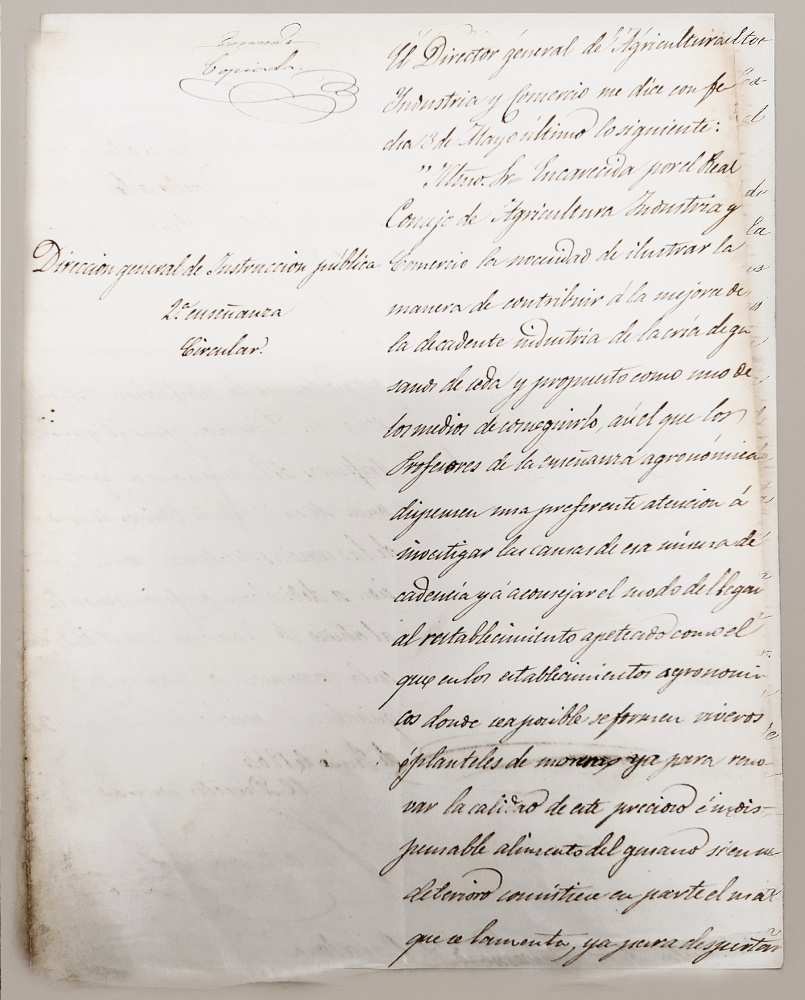 Copiada
Direccion general de Instruccion pública
2ª enseñanza
Circular.
El Director general de Agricultura
Industria y Comercio me dice con fe
cha 3 de Mayo último lo siguiente:
"Iltmo. Sr. Encarecida por el Real
Consejo de Agricultura Industria y
Comercio la necesidad de ilustrar la
manera de contribuir á la mejora de
la decadente industria de la cría de gu
sanos de seda y propuesto como uno de
los medios de conseguirlo, asi el que los
Profesores de la enseñanza agronómica
dispensen una preferente atencion á
investigar las causas de esa misma de
cadencia y á aconsejar el modo de llegar
al restablecimiento apetecido como el
que en los establecimientos agronomi
cos donde sea posible se formen viveros
ó planteles de moreras ya para reno
var la calidad de este precioso é indis-
pensable alimento del gusano si en su
deterioro consistiere en parte el mal
que se lamenta, ya para despertar